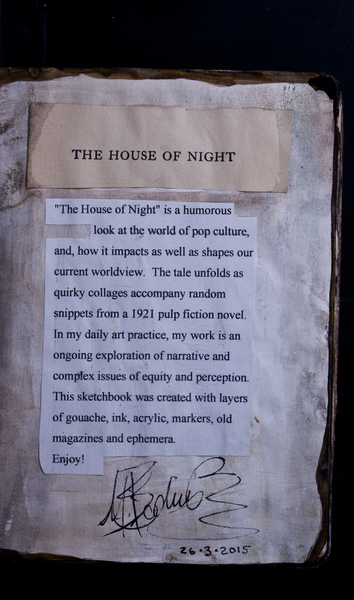 THE HOUSE OF NIGHT
"The House of Night" is a humorous
look at the world of pop culture,
and, how it impacts as well as shapes our
current worldview. The tale unfolds as
quirky collages accompany random
snippets from a 1921 pulp fiction novel.
In my daily art practice, my work is an
ongoing exploration of narrative and
complex issues of equity and perception.
This sketchbook was created with layers
of gouache, ink, acrylic, markers, old
magazines and ephemera.
Enjoy!
26·3·2015